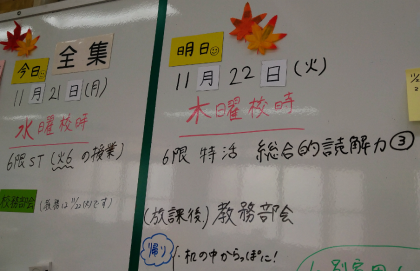 今日 全集
11月21日(月)
水曜校時
6限ST(火6の授業)
校務部会
明日
11月22日(火)
木曜校時
6限 特活 総合的読解力③
(放課後)教務部会
帰り
・机の中からっぽに!